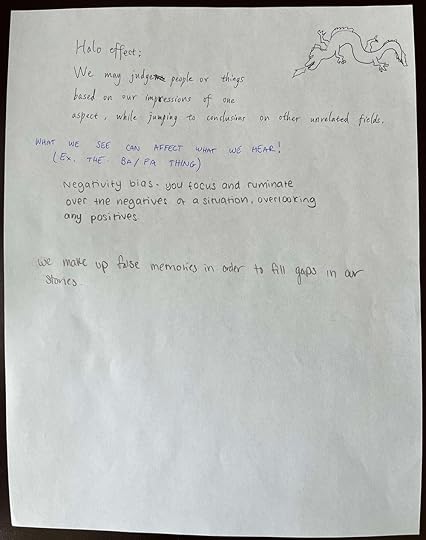 Halo effect:
We may judge people or things
based on our impressions of one
aspect, while jumping to conclusions on other unrelated fields.
WHAT WE SEE CAN AFFECT WHAT WE HEAR!
(EX. THE BA/FA THING)
Negativity bias - you focus and ruminate
over the negatives of a situation, overlooking
any positives.
We make up false memories in order to fill gaps in our
stories.